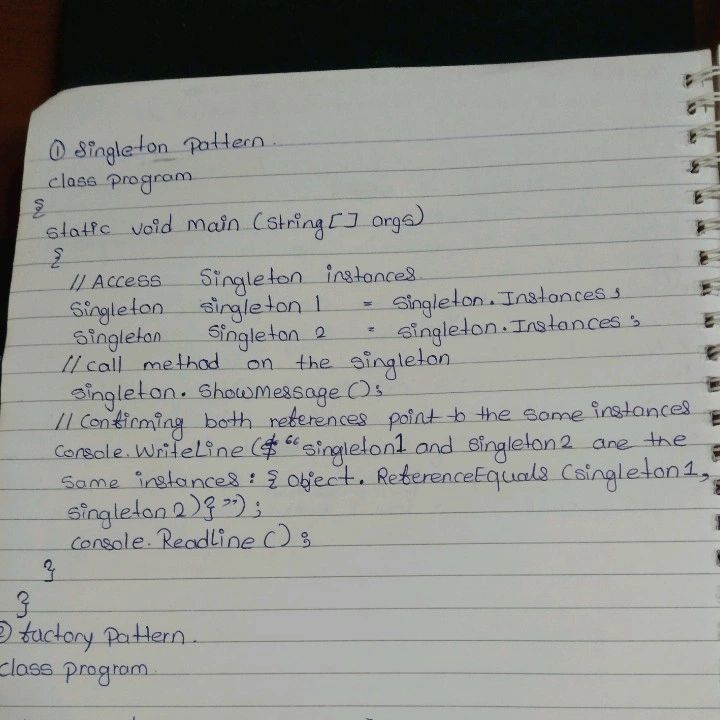 ① Singleton Pattern.
class program
{
static void main (string[] args)
{
// Access Singleton instances
Singleton singleton 1 = singleton.Instances;
Singleton Singleton 2 = singleton.Instances;
// call method on the singleton
singleton. ShowMessage ();
// Confirming both references point to the same instances
Console.WriteLine ($ “singleton1 and singleton2 are the
same instances : { object. ReferenceEquals (singleton1,
singleton 2)}”);
console. Readline ();
}
}
② factory Pattern.
class program